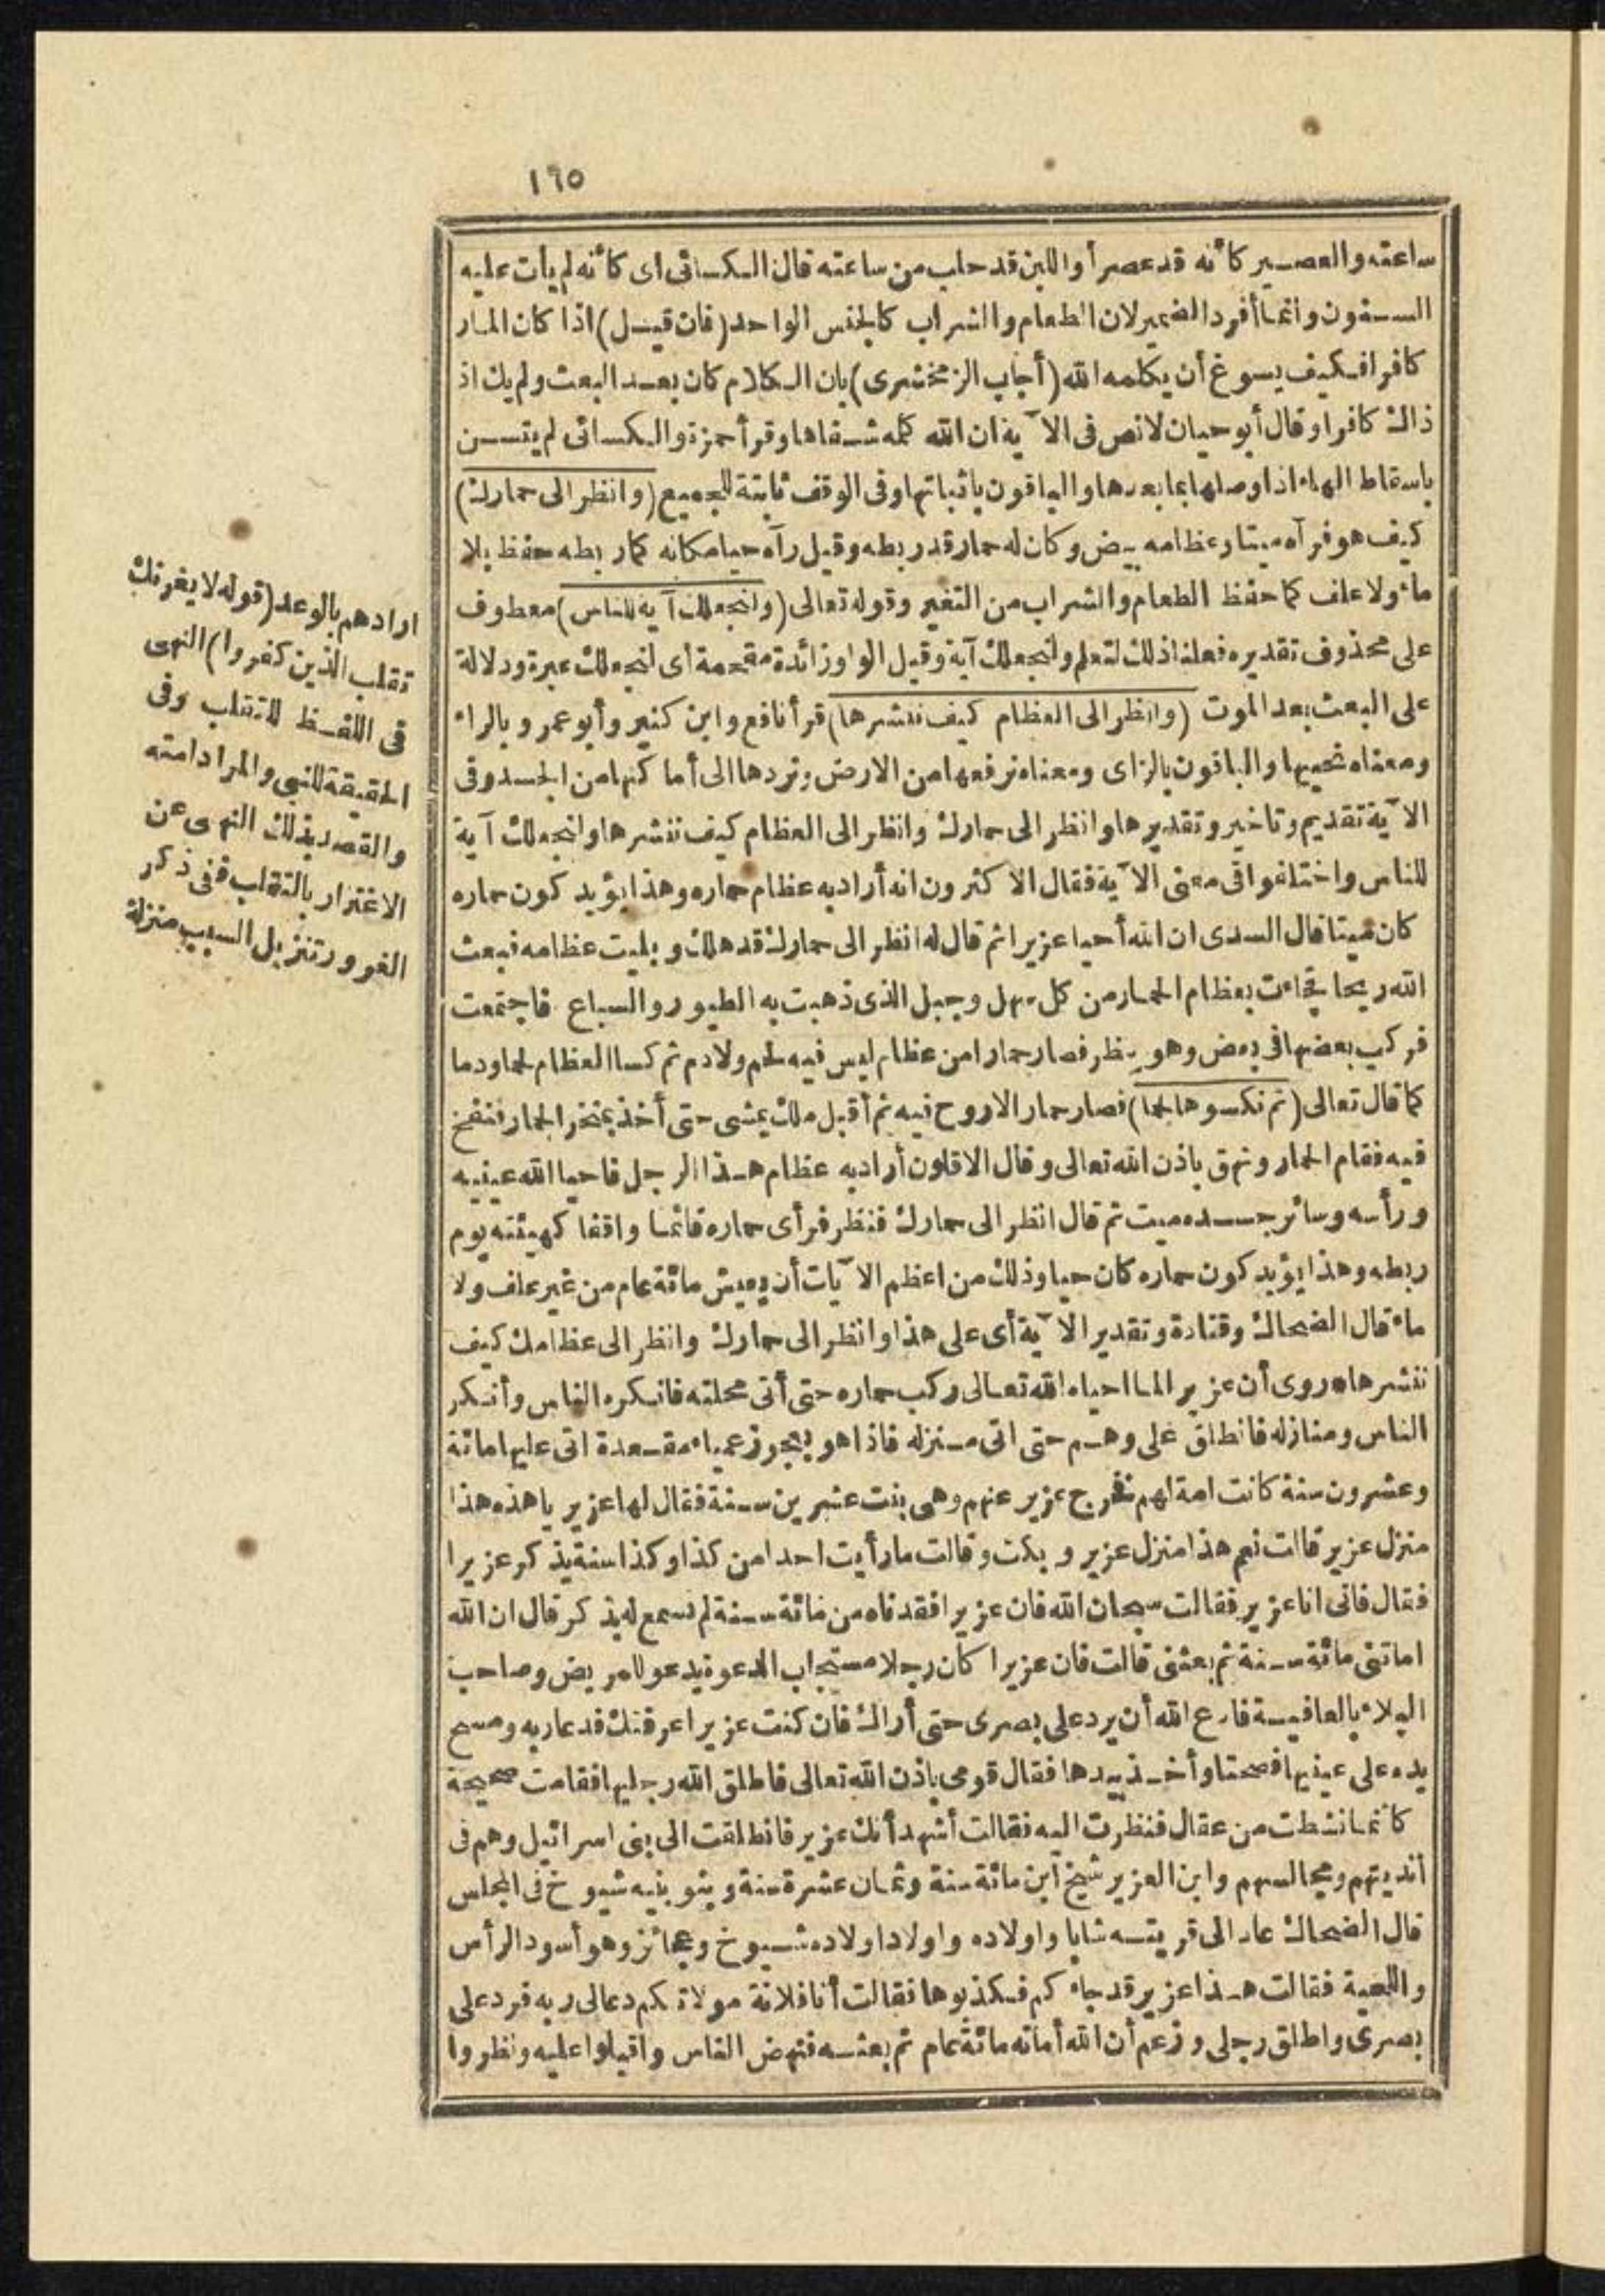 ١٦٥
ساعته والعصير كأنه قد عصر أو اللبن قد حلب من ساعته قال الكسائى اى كأنه لم يأت عليه
السنون وانما أفرد الضمير لان الطعام والشراب كالجنس الواحد (فان قيل) اذا كان المار
كافرا فكيف يسوغ أن يكلمه الله (أجاب الزمخشرى) بان الكلام كان بعد البعث ولم يك اذ
ذاك كافرا وقال أبو حيان لا نص فى الآية ان الله كلمه شفاها وقرأ حمزة والكسائى لم يتسن
باسقاط الهاء اذا وصلها بما بعدها والباقون باثباتها وفى الوقف ثابتة للجميع (وانظر الى حمارك)
كيف هو فرآه ميتا وعظامه بيض وكان له حمار قد ربطه وقيل رآه حيا مكانه كما ربطه حفظ بلا
ماء ولا علف كما حفظ الطعام والشراب من التغير وقوله تعالى (ولنجعلك آية للناس) معطوف
على محذوف تقديره فعلنا ذلك لتعلم ولنجعلك آية وقيل الواو زائدة مقحمة اى لنجعلك عبرة ودلالة
على البعث بعد الموت (وانظر الى العظام كيف ننشرها) قرأ نافع وابن كثير وأبو عمرو بالراء
ومعناه نحييها والباقون بالزاى ومعناه نرفعها من الارض ونردها الى أماكنها من الجسد وفى
الآية تقديم وتاخير وتقديرها وانظر الى حمارك وانظر الى العظام كيف ننشرها ولنجعلك آية
للناس واختلفوا فى معنى الآية فقال الاكثرون انه أراد به عظام حماره وهذا يؤيد كون حماره
كان ميتا قال السدى ان الله أحيا عزيرا ثم قال له انظر الى حمارك قد هلك وبليت عظامه فبعث
الله ريحا فجاءت بعظام الحمار من كل سهل وجبل الذى ذهبت به الطيور والسباع فاجتمعت
فركب بعضها فى بعض وهو ينظر فصار حمارا من عظام ليس فيه لحم ولا دم ثم كسا العظام لحما ودما
كما قال تعالى (ثم نكسوها لحما) فصار حمار الا روح فيه ثم أقبل ملك يمشى حتى أخذ بمنخر الحمار فنفخ
فيه فقام الحمار ونهق باذن الله تعالى وقال الاقلون أراد به عظام هذا الرجل فاحيا الله عينيه
ورأسه وسائر جسده ميت ثم قال انظر الى حمارك فنظر فرأى حماره قائما واقفا كهيئته يوم
ربطه وهذا يؤيد كون حماره كان حيا وذلك من اعظم الآيات أن يعيش مائة عام من غير علف ولا
ماء قال الضحاك وقتادة وتقدير الآية أى على هذا وانظر الى حمارك وانظر الى عظامك كيف
ننشرها وروى أن عزيرا لما احياه الله تعالى ركب حماره حتى أتى محلته فانكره الناس وأنكر
الناس ومنازله فانطلق على وهم حتى اتى منزله فاذا هو بعجوز عمياء مقعدة اتى عليها مائة
وعشرون سنة كانت امة لهم فخرج عزير عنهم وهى بنت عشرين سنة فقال لها عزير يا هذه هذا
منزل عزير قالت نعم هذا منزل عزير وبكت وقالت ما رأيت احدا من كذا وكذا سنة يذكر عزيرا
فقال فانى انا عزير فقالت سبحان الله فان عزيرا فقدناه من مائة سنة لم نسمع له بذكر قال ان الله
اماتنى مائة سنة ثم بعثنى قالت فان عزيرا كان رجلا مستجاب الدعوة يدعو للمريض وصاحب
البلاء بالعافية فادع الله أن يرد على بصرى حتى أراك فان كنت عزيرا عرفتك فدعا ربه ومسح
يده على عينيها فصحتا وأخذ بيدها فقال قومى باذن الله تعالى فاطلق الله رجليها فقامت صحيحة
كأنما نشطت من عقال فنظرت اليه فقالت أشهد أنك عزير فانطلقت الى بنى اسرائيل وهم فى
أنديتهم ومجالسهم وابن العزير شيخ ابن مائة سنة وثمان عشرة سنة وبنو بنيه شيوخ فى المجلس
قال الضحاك عاد الى قريته شابا واولاده واولاد اولاده شيوخ وعجائز وهو أسود الرأس
واللحية فقالت هذا عزير قد جاءكم فكذبوها فقالت أنا فلانة مولاتكم دعا لى ربه فرد على
بصرى واطلق رجلى وزعم أن الله أماته مائة عام ثم بعثه فنهض الناس واقبلوا عليه ونظروا
ارادهم بالوعد (قوله لا يغرنك
تقلب الذين كفروا) النهى
فى اللفظ للتقلب وفى
الحقيقة للنبى والمراد امته
والقصد بذلك النهى عن
الاغترار بالتقلب ففى ذكر
الغرور تنزيل السبب منزلة